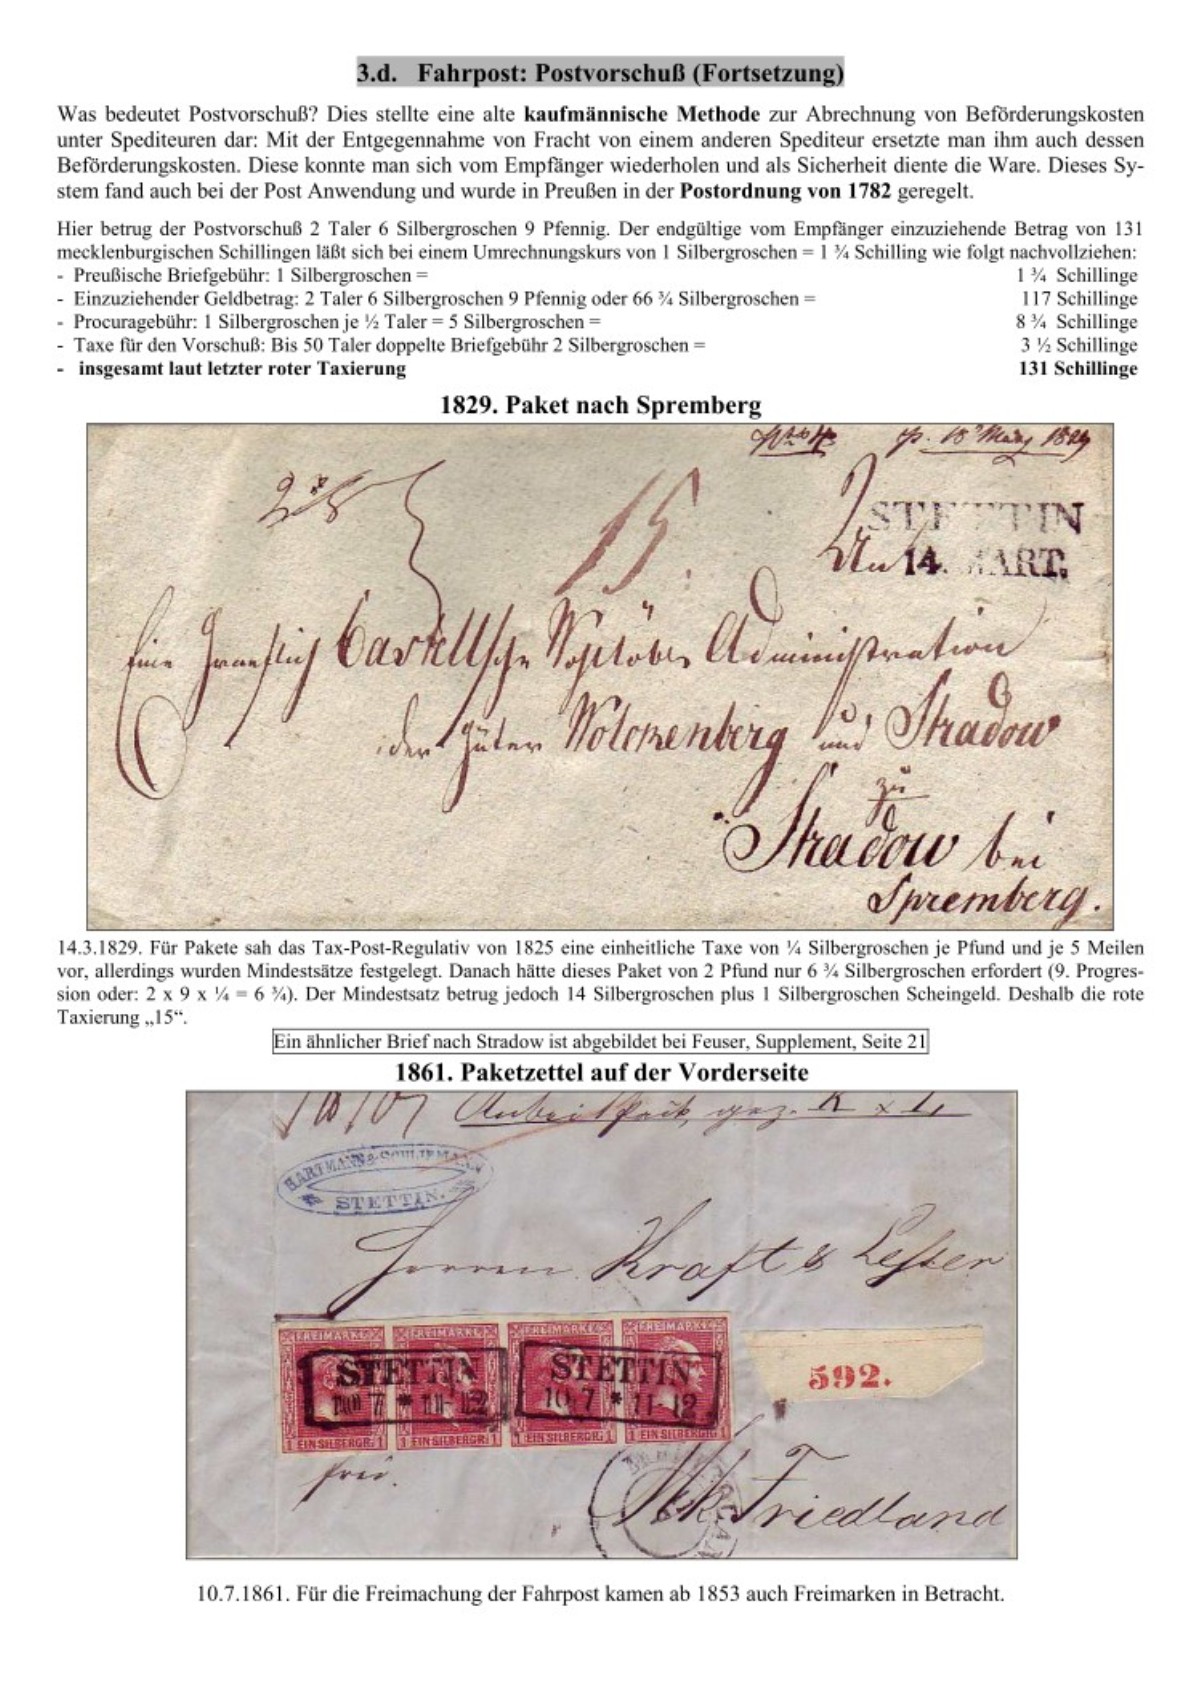 3.d. Fahrpost: Postvorschuß (Fortsetzung)
Was bedeutet Postvorschuß? Dies stellte eine alte kaufmännische Methode zur Abrechnung von Beförderungskosten
unter Spediteuren dar: Mit der Entgegennahme von Fracht von einem anderen Spediteur ersetzte man ihm auch dessen
Beförderungskosten. Diese konnte man sich vom Empfänger wiederholen und als Sicherheit diente die Ware. Dieses Sy-
stem fand auch bei der Post Anwendung und wurde in Preußen in der Postordnung von 1782 geregelt.
Hier betrug der Postvorschuß 2 Taler 6 Silbergroschen 9 Pfennig. Der endgültige vom Empfänger einzuziehende Betrag von 131
mecklenburgischen Schillingen läßt sich bei einem Umrechnungskurs von 1 Silbergroschen = 1 ¾ Schilling wie folgt nachvollziehen:
- Preußische Briefgebühr: 1 Silbergroschen = 1 ¾ Schillinge
- Einzuziehender Geldbetrag: 2 Taler 6 Silbergroschen 9 Pfennig oder 66 ¾ Silbergroschen = 117 Schillinge
- Procuragebühr: 1 Silbergroschen je ½ Taler = 5 Silbergroschen = 8 ¾ Schillinge
- Taxe für den Vorschuß: Bis 50 Taler doppelte Briefgebühr 2 Silbergroschen = 3 ½ Schillinge
- insgesamt laut letzter roter Taxierung 131 Schillinge
1829. Paket nach Spremberg
p. 18 März 1829
15
STETTIN
An 14. MART.
Eine Graeflich Castellsche Administration
der Güter Wolckenberg und Stradow
zu
Stradow bei
Spremberg.
14.3.1829. Für Pakete sah das Tax-Post-Regulativ von 1825 eine einheitliche Taxe von ¼ Silbergroschen je Pfund und je 5 Meilen
vor, allerdings wurden Mindestsätze festgelegt. Danach hätte dieses Paket von 2 Pfund nur 6 ¾ Silbergroschen erfordert (9. Progres-
sion oder: 2 x 9 x ¼ = 6 ¾). Der Mindestsatz betrug jedoch 14 Silbergroschen plus 1 Silbergroschen Scheingeld. Deshalb die rote
Taxierung „15“.
Ein ähnlicher Brief nach Stradow ist abgebildet bei Feuser, Supplement, Seite 21
1861. Paketzettel auf der Vorderseite
HARTMANN & SCHLIEMANN
STETTIN.
Herren Kraft & Lesser
FREIMARKE FREIMARKE FREIMARKE FREIMARKE
STETTIN STETTIN
10 7 * 11-12 10 7 * 11-12
592.
1 EIN SILBERGR. 1 1 EIN SILBERGR. 1 1 EIN SILBERGR. 1 1 EIN SILBERGR. 1
frei.
Mk. Friedland
10.7.1861. Für die Freimachung der Fahrpost kamen ab 1853 auch Freimarken in Betracht.